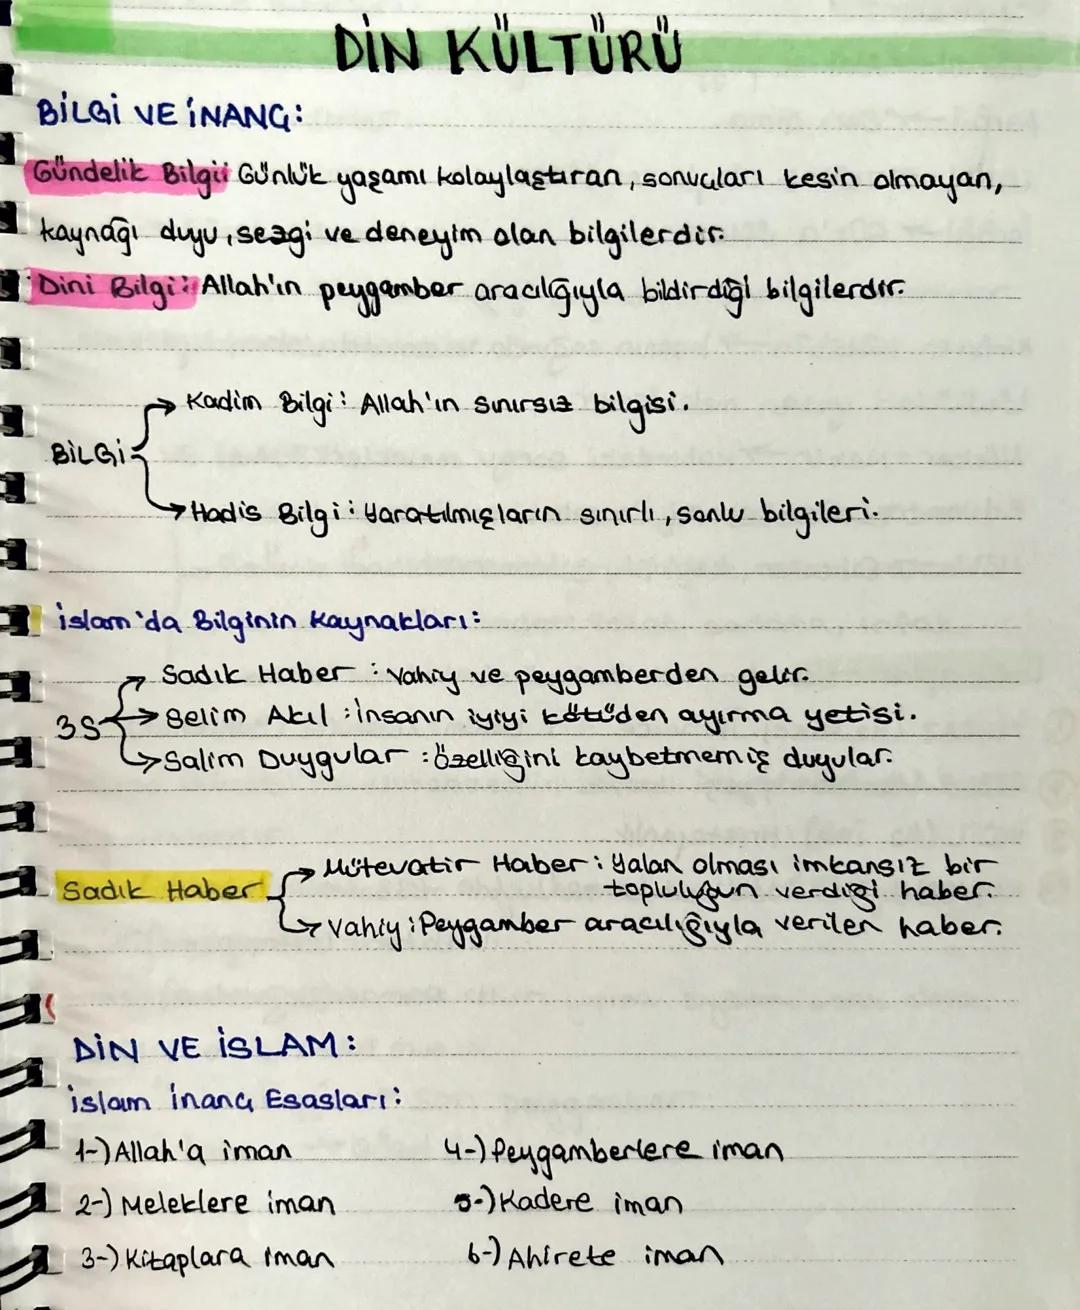 DİN KÜLTÜRÜ
BİLGİ VE İNANÇ:
Gündelik Bilgi: Günlük yaşamı kolaylaştıran, sonuçları kesin olmayan,
kaynağı duyu, sezgi ve deneyim olan bilgilerdir.
Dini Bilgi: Allah'ın peygamber aracılığıyla bildirdiği bilgilerdir.
Kadim Bilgi: Allah'ın sınırsız bilgisi.
BİLGİ
Hadis Bilgi: Yaratılmışların sınırlı, sonlu bilgileri.
İslam'da Bilginin Kaynakları:
Sadık Haber: Vahiy ve peygamberden gelir.
3S → Selim Akıl: İnsanın iyiyi kötüden ayırma yetisi.
Salim Duygular: Özelliğini kaybetmemiş duyular.
Mütevatir Haber: Yalan olması imkansız bir
Sadık Haber topluluğun verdiği haber.
Vahiy: Peygamber aracılığıyla verilen haber.
DİN VE İSLAM:
İslam İnanç Esasları:
1-) Allah'a iman 4-) Peygamberlere iman
2-) Meleklere iman 5-) Kadere iman
3-) Kitaplara iman 6-) Ahirete iman